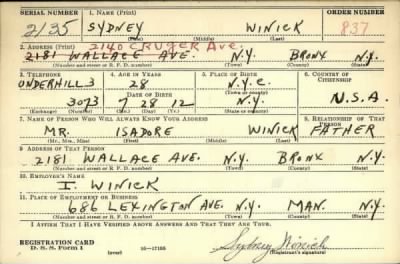 SERIAL NUMBER 1. NAME (Print) ORDER NUMBER
2135 SYDNEY WINICK 837
(First) (Middle) (Last)
2. ADDRESS (Print) 2140 CRUGER AVE.
2181 WALLACE AVE. N.Y. BRONX N.Y.
(Number and street or R. F. D. number) (Town) (County) (State)
3. TELEPHONE 4. AGE IN YEARS 5. PLACE OF BIRTH 6. COUNTRY OF CITIZENSHIP
UNDERHILL 3 28 N.Y.C.
DATE OF BIRTH (Town or county)
3073 7 28 12 N.Y. U.S.A.
(Exchange) (Number) (Mo.) (Day) (Yr.) (State or country)
7. NAME OF PERSON WHO WILL ALWAYS KNOW YOUR ADDRESS 8. RELATIONSHIP OF THAT PERSON
MR. ISADORE WINICK FATHER
(Mr., Mrs., Miss) (First) (Middle) (Last)
9. ADDRESS OF THAT PERSON
2181 WALLACE AVE. N.Y. BRONX N.Y.
(Number and street or R. F. D. number) (Town) (County) (State)
10. EMPLOYER'S NAME
I. WINICK
11. PLACE OF EMPLOYMENT OR BUSINESS
686 LEXINGTON AVE. N.Y. MAN. N.Y.
(Number and street or R. F. D. number) (Town) (County) (State)
I AFFIRM THAT I HAVE VERIFIED ABOVE ANSWERS AND THAT THEY ARE TRUE.
REGISTRATION CARD
D. S. S. Form 1 (over) 16—17105 Sydney Winick
(Registrant's signature)